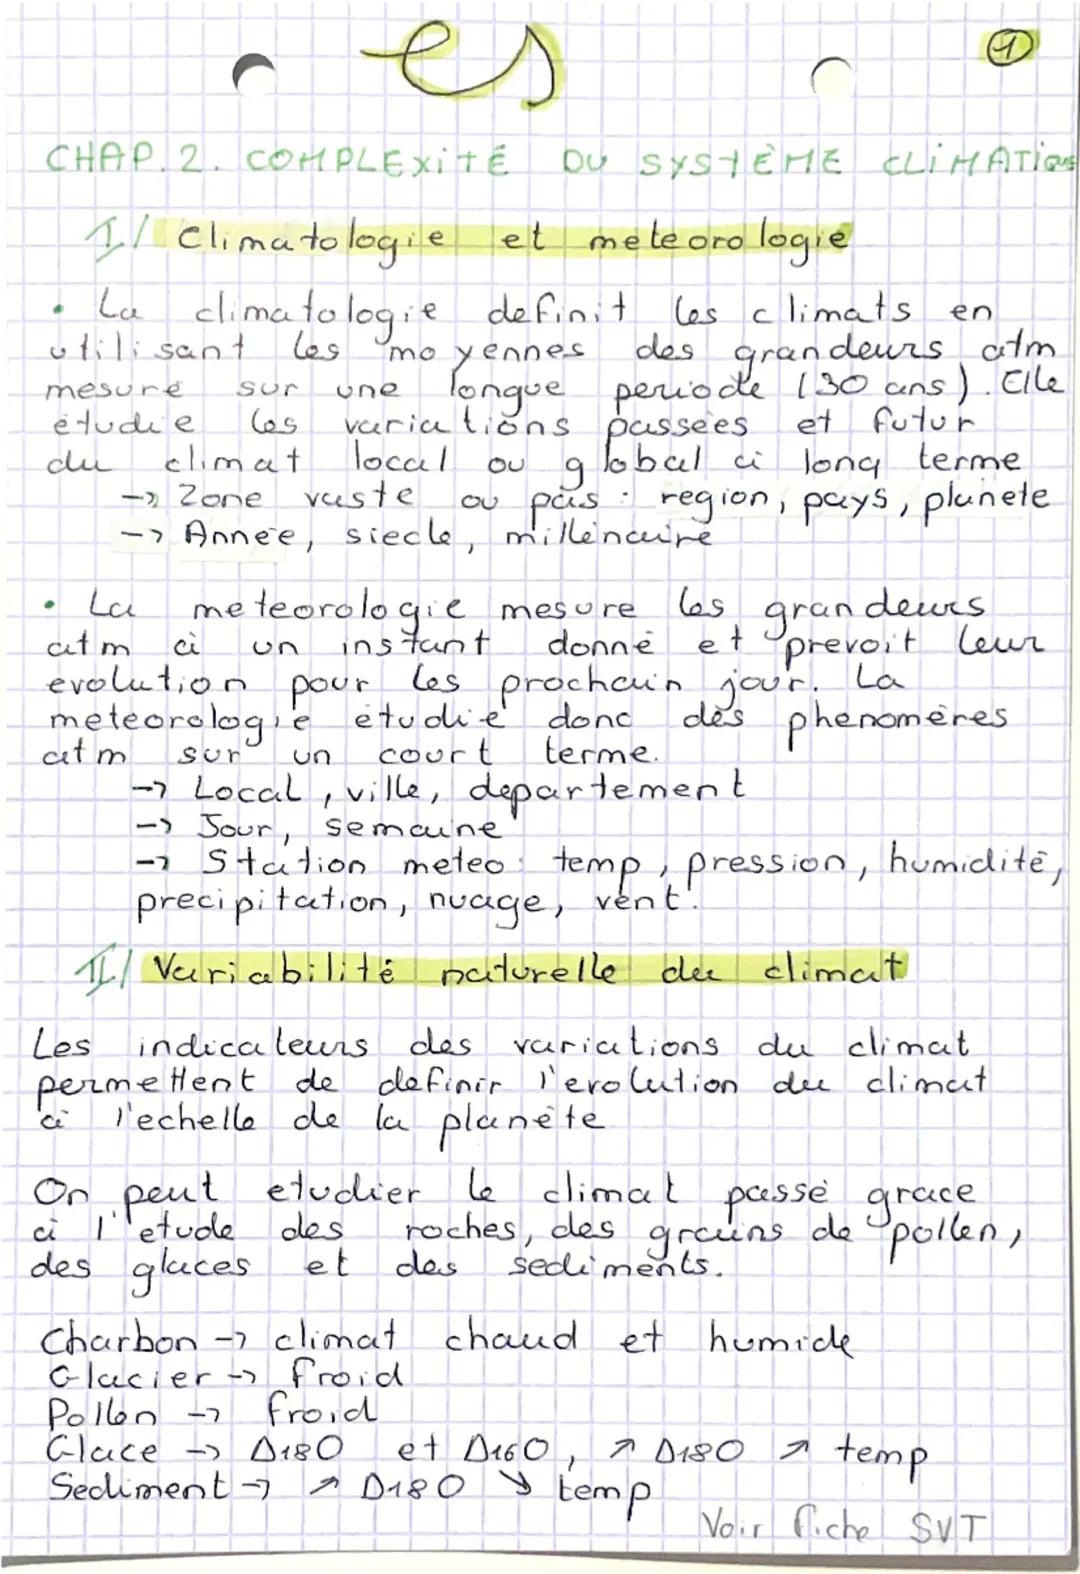 es
1
CHAP.2. COMPLEXiTÉ DU SYSTÈME CLiMATiQUE
I/ Climatologie et meteorologie
• La climatologie definit les climats en
utilisant les moyennes des grandeurs atm
mesure sur une longue periode (30 ans). Elle
étudie les variations passées et futur
du climat local ou global à long terme
-> Zone vaste ou pas : region, pays, planete
-> Année, siecle, millénaire
• La meteorologie mesure les grandeurs
atm à un instant donné et prevoit leur
evolution pour les prochain jour. La
meteorologie étudie donc des phenomères
atm sur un court terme.
-> Local, ville, departement
-> Jour, semaine
-> Station meteo : temp, pression, humidité,
precipitation, nuage, vent.
II/ Variabilité naturelle du climat
Les indicateurs des variations du climat
permettent de definir l'evolution du climat
à l'echelle de la planète
On peut etudier le climat passé grace
à l'etude des roches, des grains de pollen,
des glaces et des sediments.
Charbon -> climat chaud et humide
Glacier -> froid
Pollen -> froid
Glace -> Δ18O et Δ16O, ↗ Δ18O ↗ temp
Sediment -> ↗ Δ18O ↘ temp
Voir fiche SVT